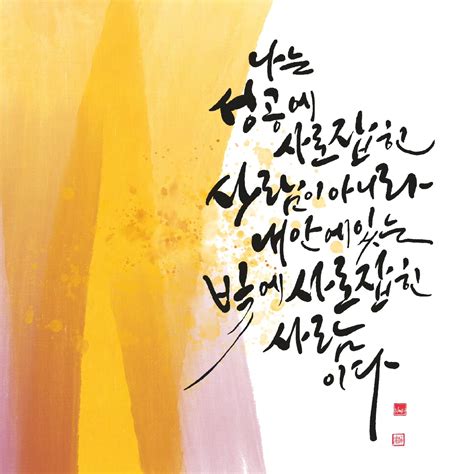 나는
성공에
사로잡힌
사람이 아니라
내 안에 있는
빛에 사로잡힌
사람
이다